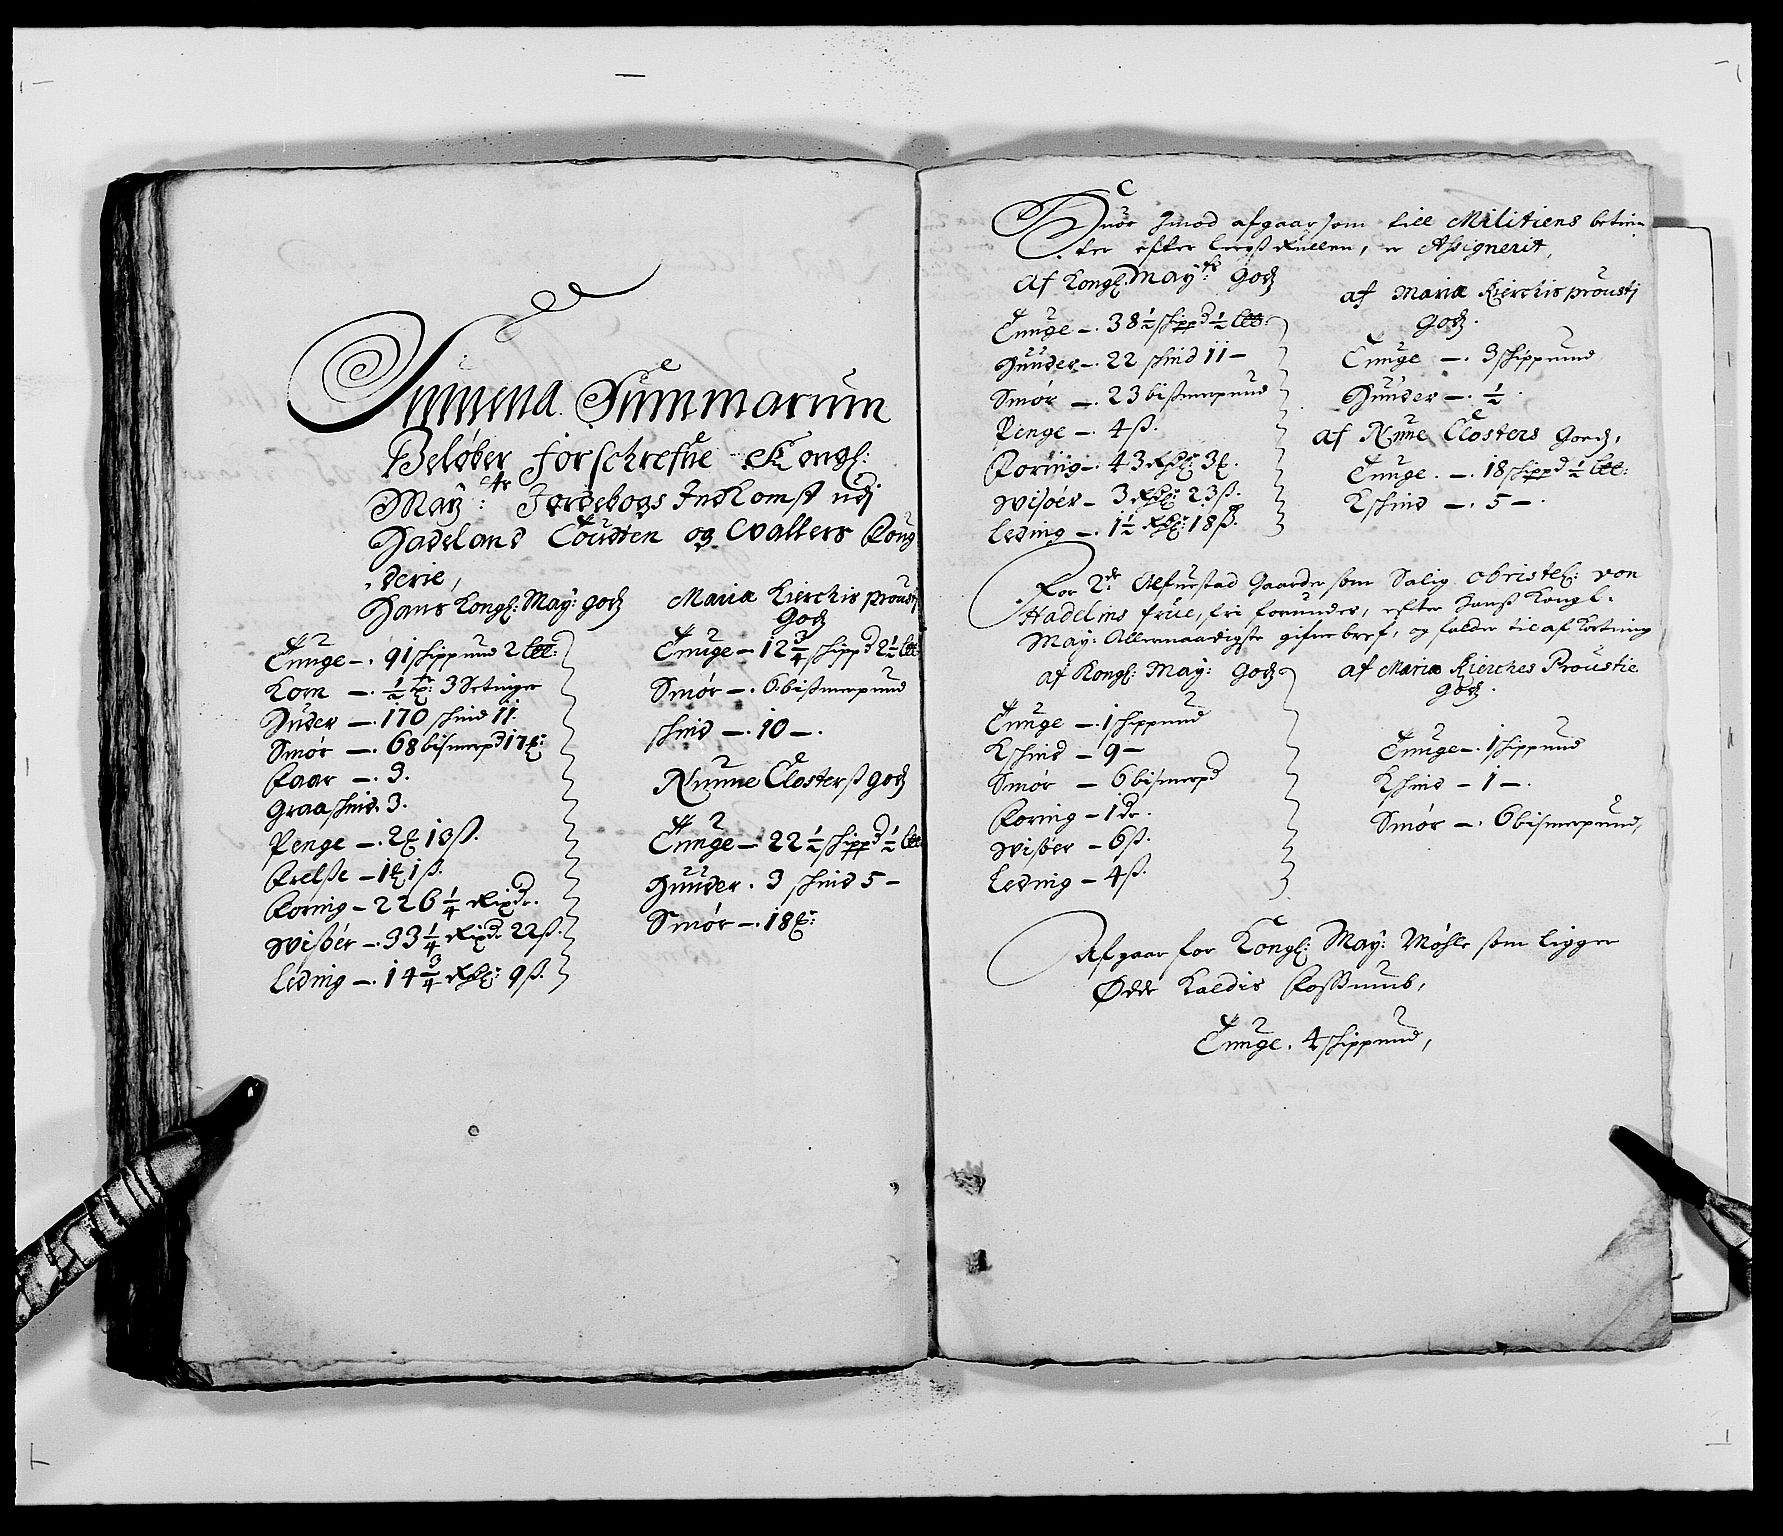 Summa Summarum
Beløber forschrefne Kongl:
May:tts Jordebogs Indkomst udj
Hadeland Toudten og Valders Foug-
derie,
Hans Kongl: May: godz
Tunge — . 91 schippund 2 lℓℓ:
Korn — . ½ tr: 3 Setinger
Huder — . 170 schind 11.
Smør — . 68 bismerpd 17 mr:
Faar — . 3.
Graaschind. 3.
Penge — . 2 ℔ 13 ß.
Frelse — 1 ℔ 1 ß.
Foring — 226 ¼ Rixdr.
Wisøer — . 33 ¼ Rixdr 22 ß.
Leding — . 14 ¾ Rdlr: 9 ß.
Maria Kierchis proustj
Godz
Tunge — 12 ¾ schippd 2 ½ lℓℓ:
Smør — . 6 bismerpund
schind — . 10 — .
Nunne Closterß godz
Tunge — . 22 ½ schippd ½ lℓℓ
Huuder . 3 schind 5 —
Smør — . 18 mr:
Huor Imod afgaar som till Militiens betien-
ter efter Leegß Rullen, er Assignerit,
af Kongl. May:tz godz
Tunge — . 38 ½ schippd ½ lℓℓ:
Huuder — . 22 schind 11 —
Smør — . 23 bismerpund
Penge — . 4 ß.
Foring — . 43 Rdlr: 3 ℔.
Wisøer — 3 Rdlr: 23 ß.
Leding — . 1 ½ Rdlr: 18 ß.
af Maria Kierchis proustj
godz.
Tunge — . 3 schippund
Huuder — . ½ .
af Nunne Closters Goedz,
Tunge . — . 18 schippd ½ lℓℓ:
Kschind — . 5 — .
For 2de Alfuestad Gaarder som Salig Obristel: von
Hadelns frue, fri forunder, efter Hanß Kongl.
May: Allernaadigste gifuebref, og falder til afkortning
af Kongl: May: Godz
Tunge — . 1 schippund
Kschind — 9 —
Smør — 6 bismerpd
Foring — 1 dr.
Wisøer — 6 ß.
Leding — 4 ß.
af Maria Kierches Proustie
godz.
Tunge — . 1 schippund
Kschind — 1 — .
Smør — . 6 bismerpund,
Afgaar for Kongl: May: Møhle som ligger
Øde Kaldis Foßumb,
Tunge . 4 schippund,